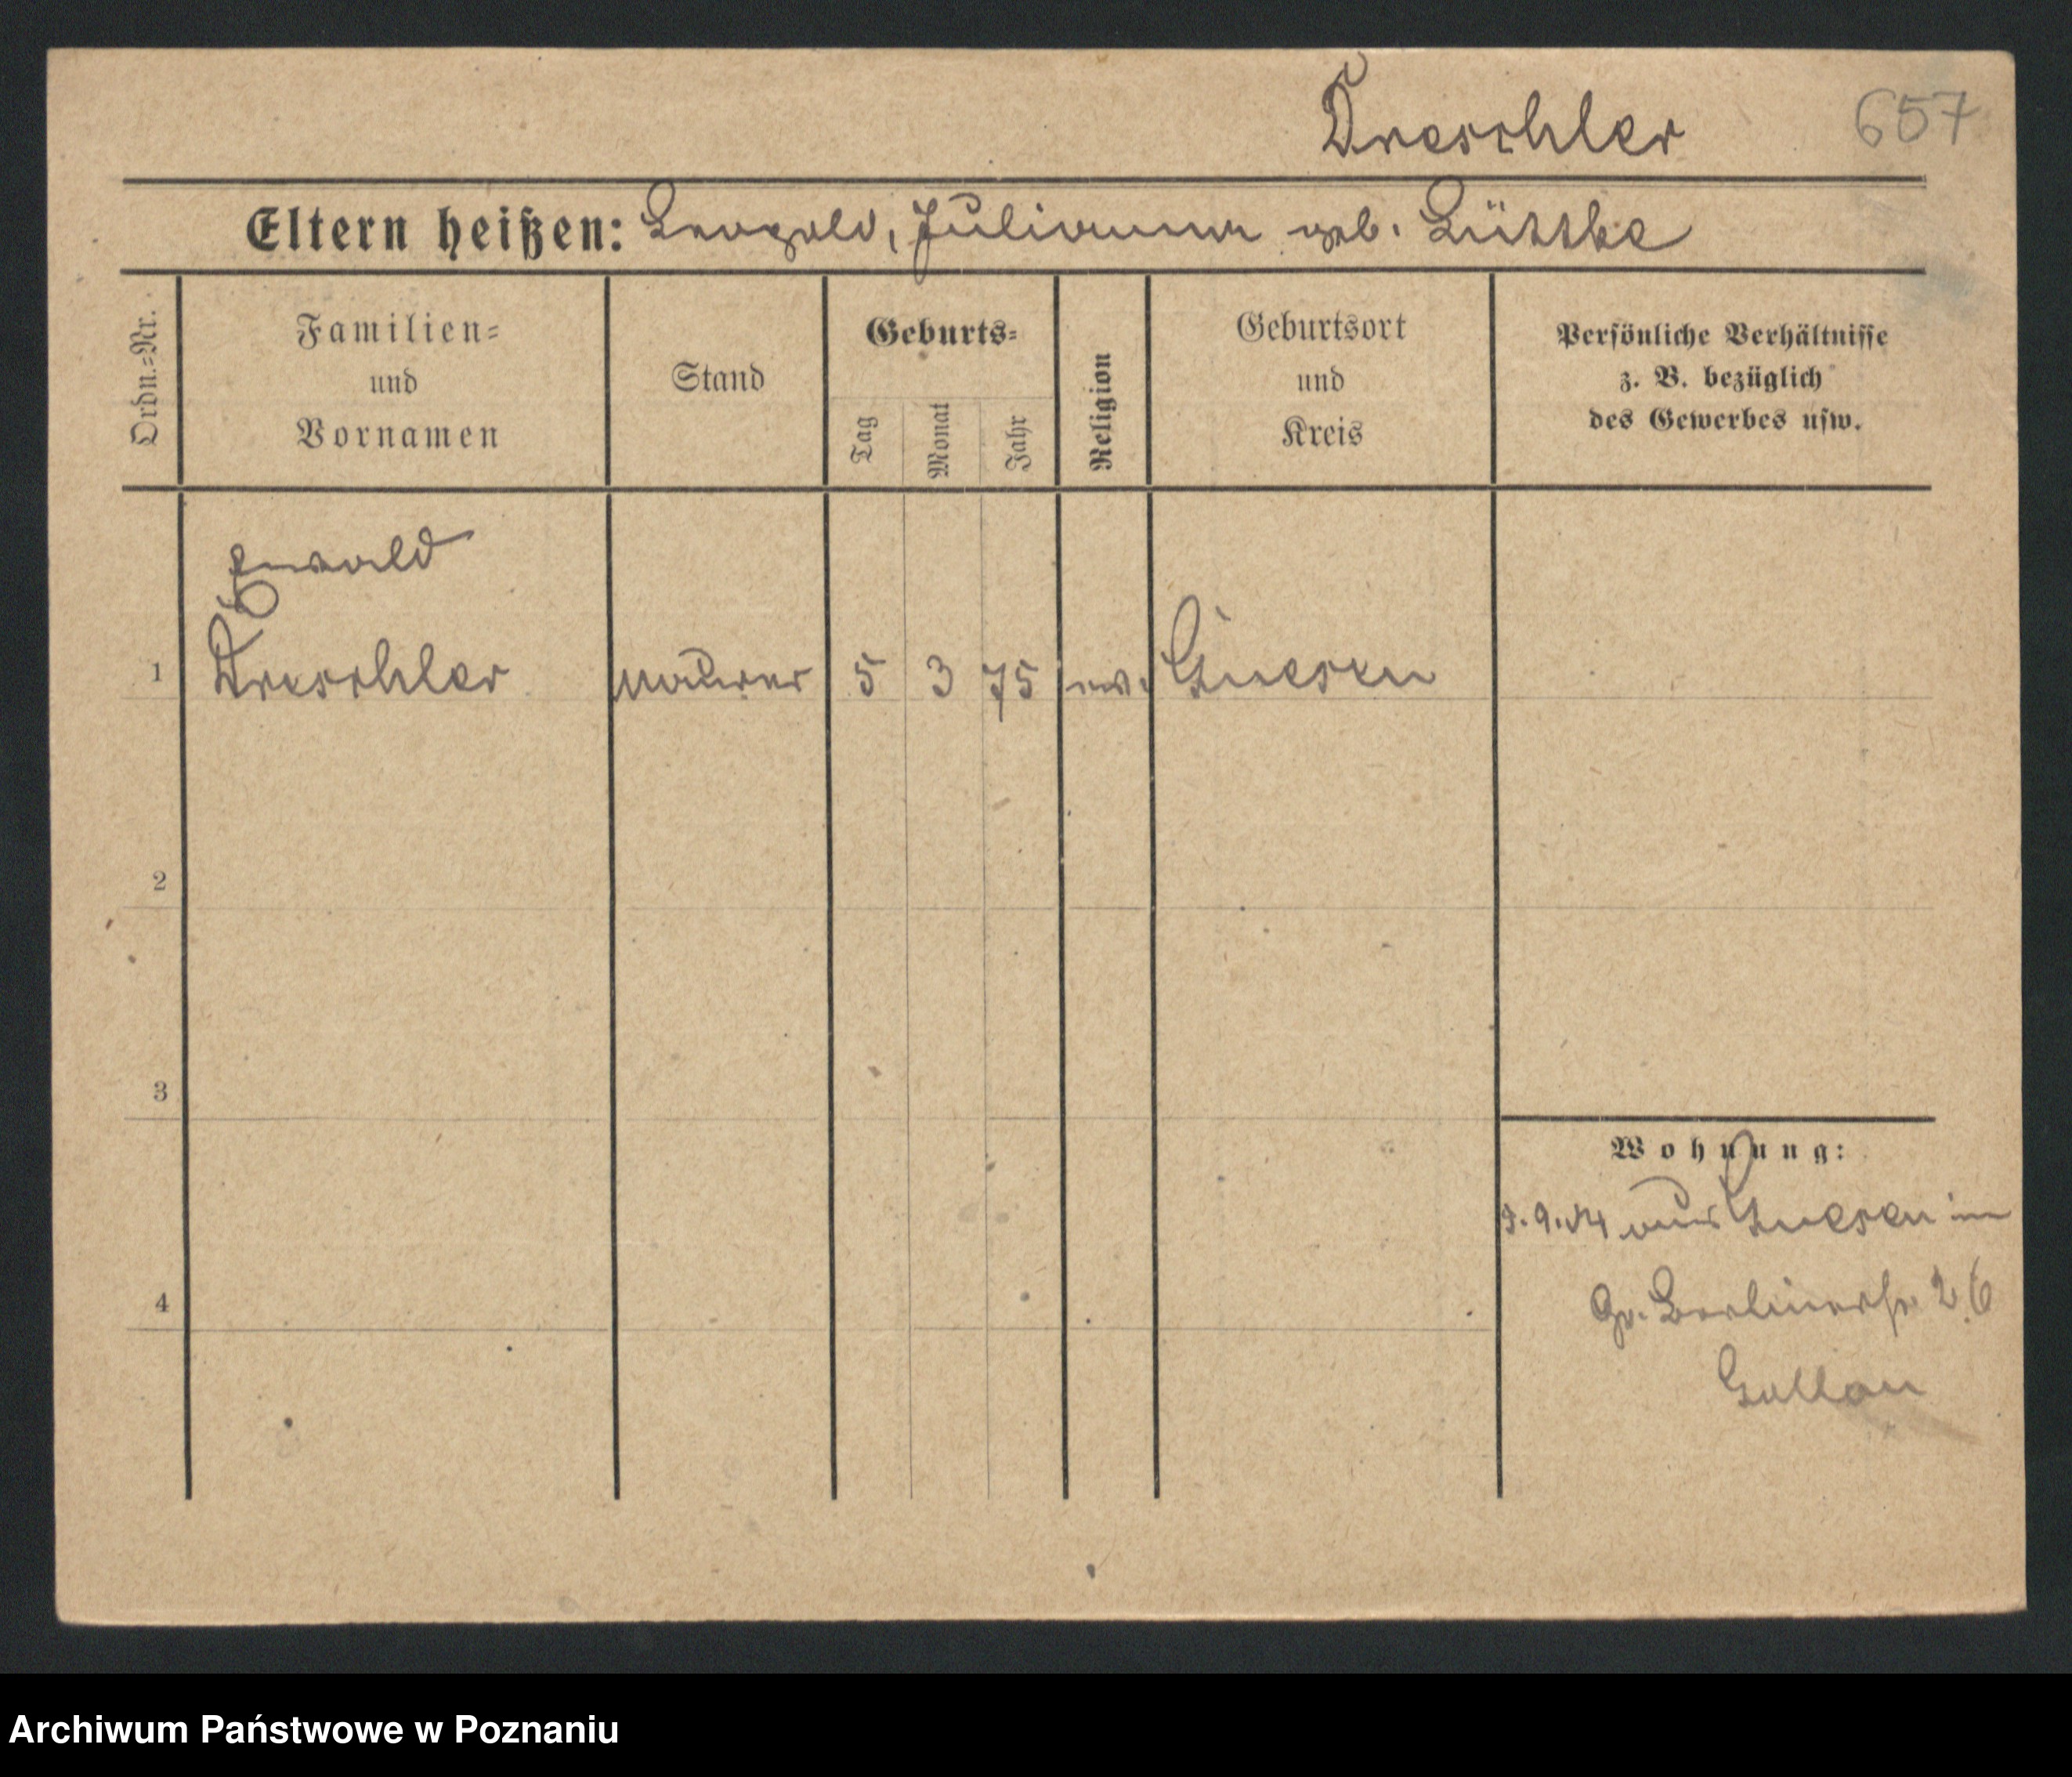 Dreschler 657
Eltern heißen: Leopold, Julianna geb. Lüttke
Ordn.=Nr.
Familien=
und
Vornamen
Stand
Geburts=
Tag
Monat
Jahr
Religion
Geburtsort
und
Kreis
Persönliche Verhältnisse
z. B. bezüglich
des Gewerbes usw.
Ewald
1 Dreschler Maurer 5 3 75 ev. Gnesen
2
3
4
Wohnung:
aus Gnesen in
Gr. Berlinerstr. 26
Archiwum Państwowe w Poznaniu